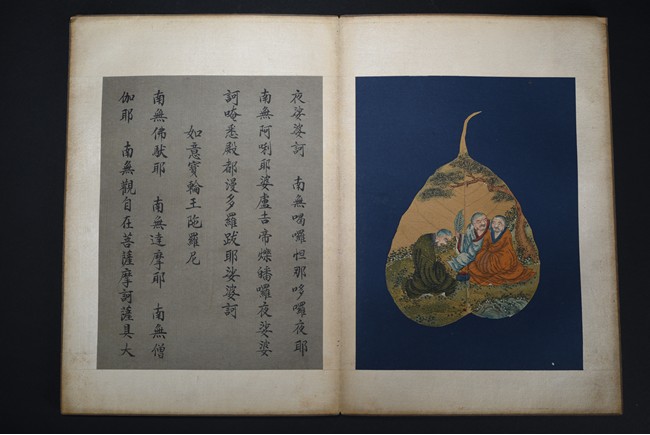 夜娑婆訶　南無喝囉怛那哆囉夜耶
南無阿唎耶婆盧吉帝爍皤囉夜娑婆
訶唵悉殿都漫多羅跋耶娑婆訶
如意寶輪王陁羅尼
南無佛馱耶　南無達摩耶　南無僧
伽耶　南無觀自在菩薩摩訶薩具大